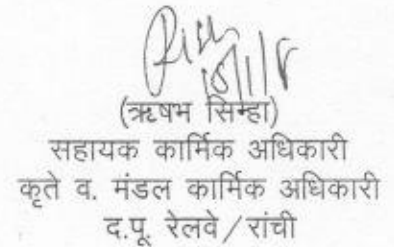 (ऋषभ सिन्हा)
सहायक कार्मिक अधिकारी
कृते व. मंडल कार्मिक अधिकारी
द.पू. रेलवे/रांची